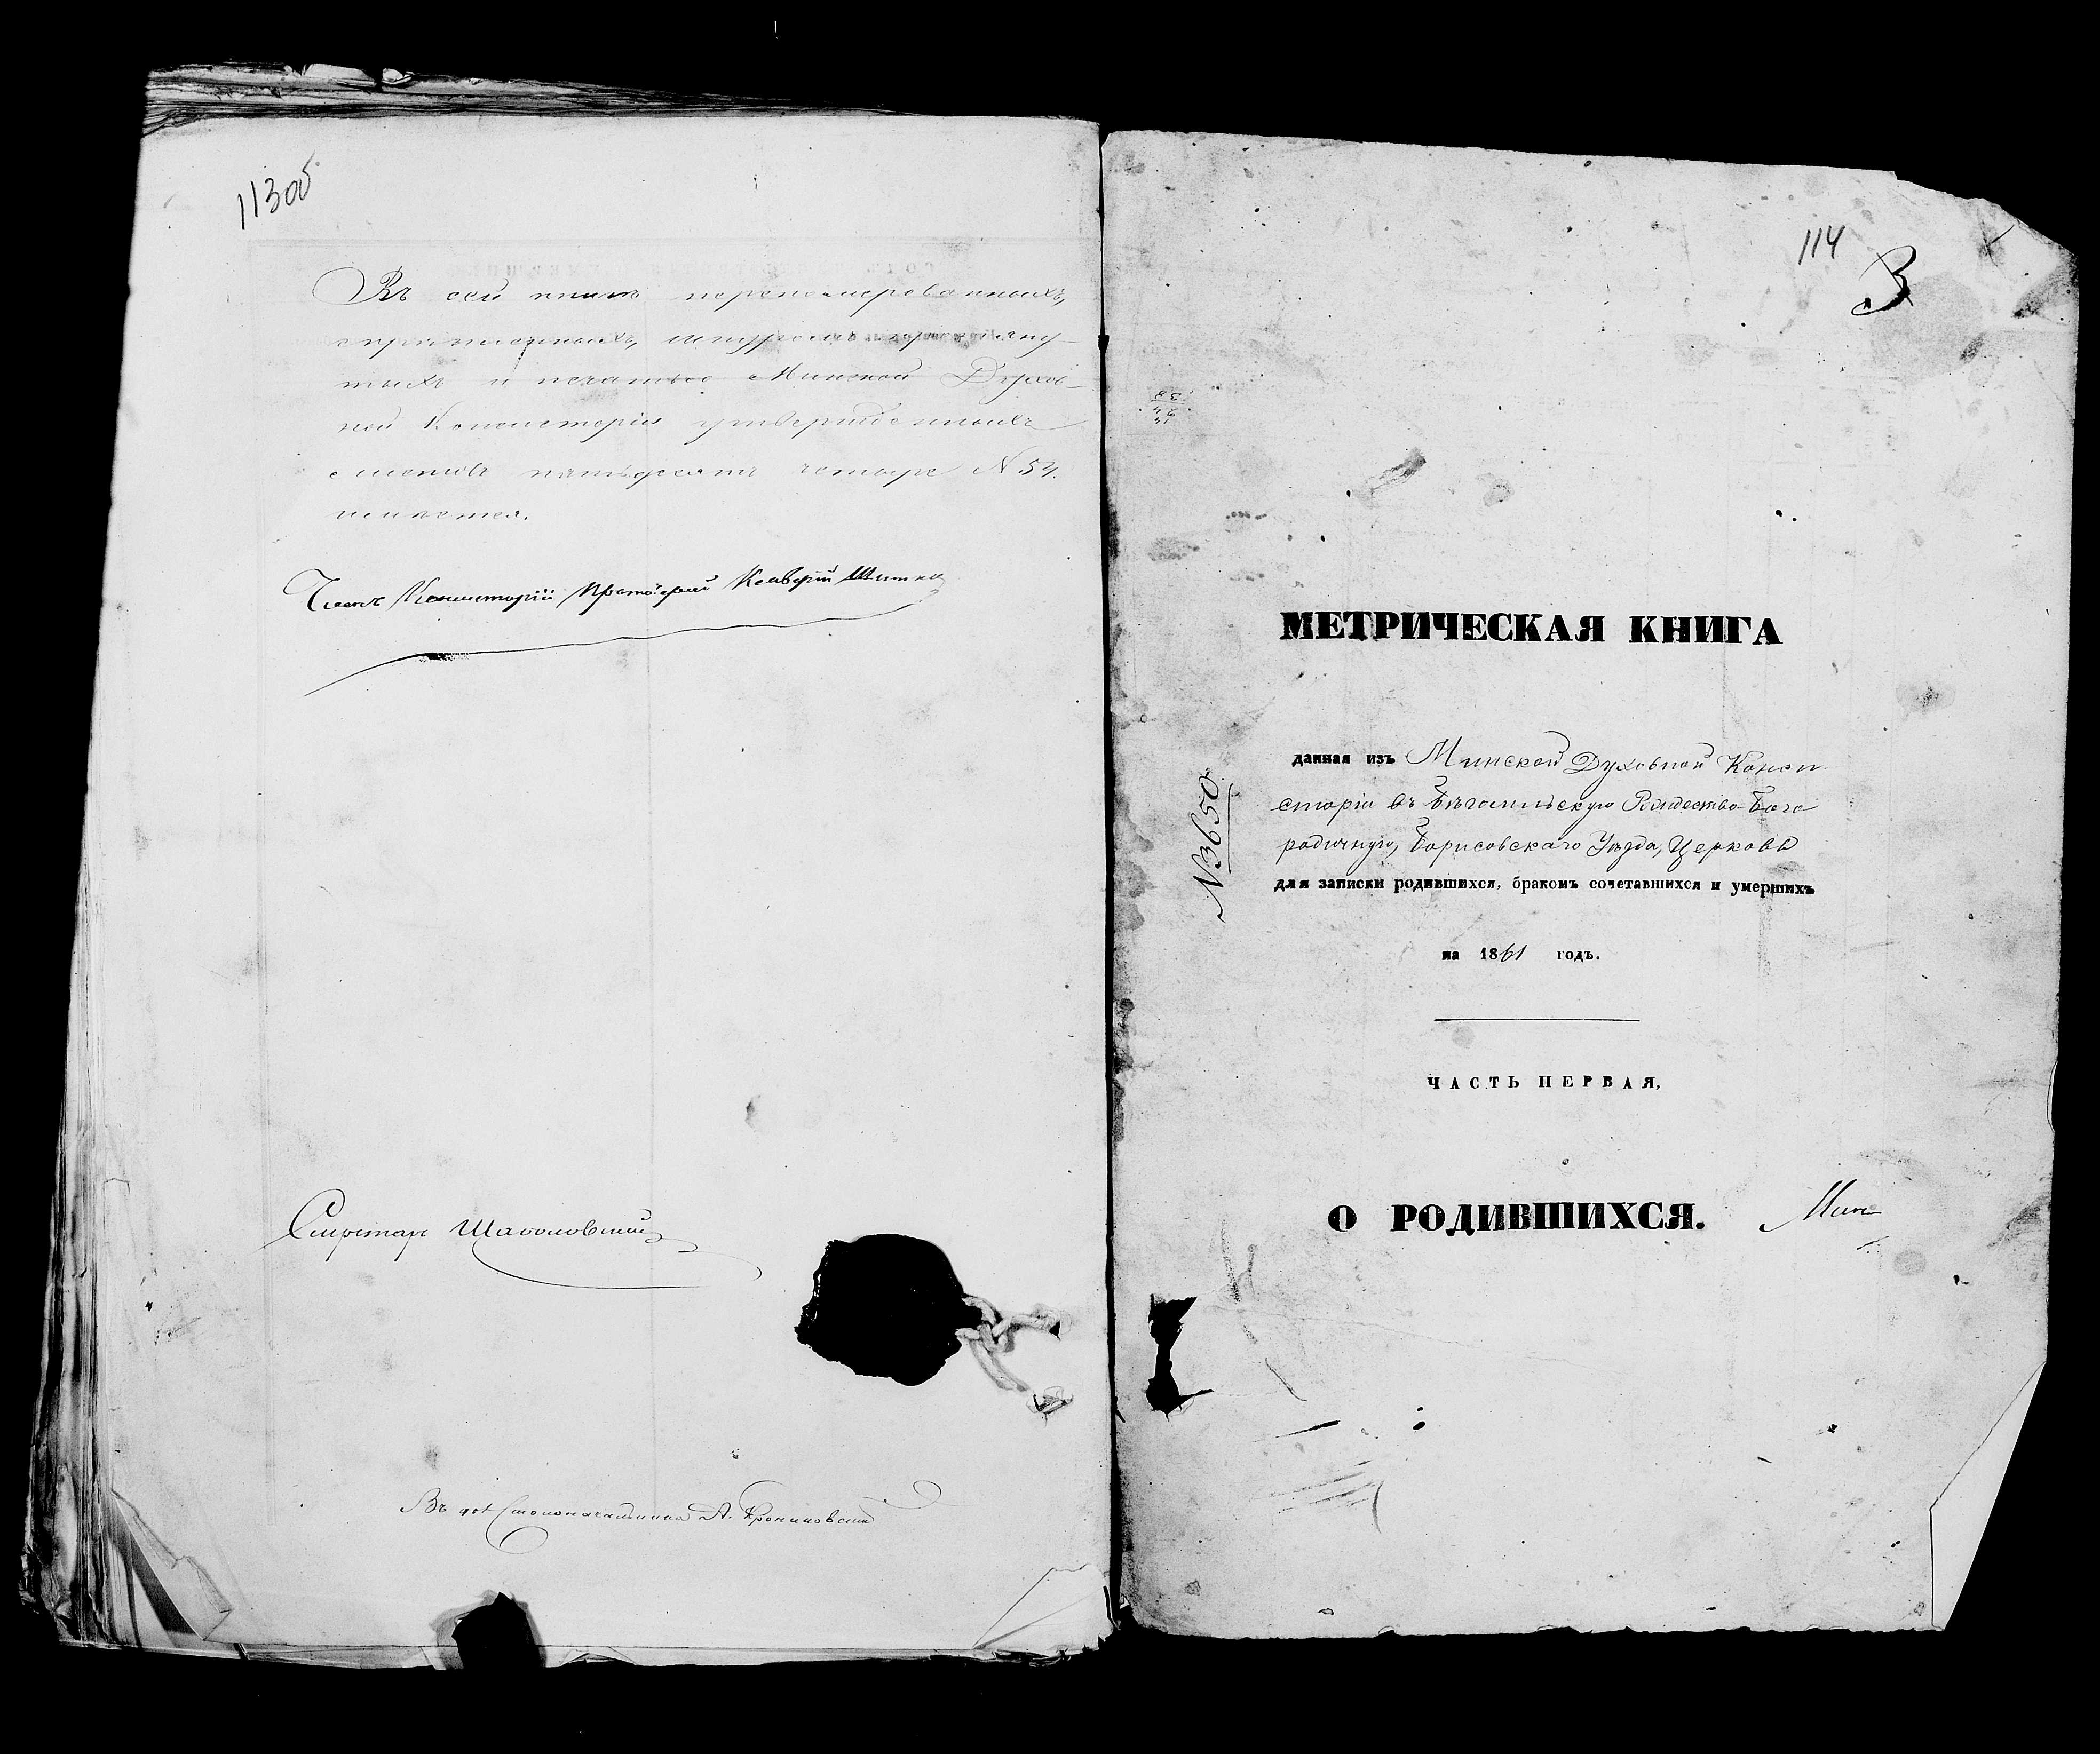 113об
Въ сей книгѣ перенумерованныхъ,
скрѣпленныхъ, шнуромъ
тыхъ и печатью Минской Духов-
ной Консисторіи утвержденныхъ
листовъ пятьдесятъ четыре N 54.
имѣется.
Членъ Консисторіи Протоіерей
Секретарь
Въ дол. Столоначальника А.
114
В
МЕТРИЧЕСКАЯ КНИГА
данная изъ Минской Духовной Конси-
сторіи въ Бѣгомльскую Рождество-Бого
родичную, Борисовскаго Уѣзда, Церковь
для записки родившихся, бракомъ сочетавшихся и умершихъ
на 1861 годъ.
N3650
ЧАСТЬ ПЕРВАЯ,
О РОДИВШИХСЯ.